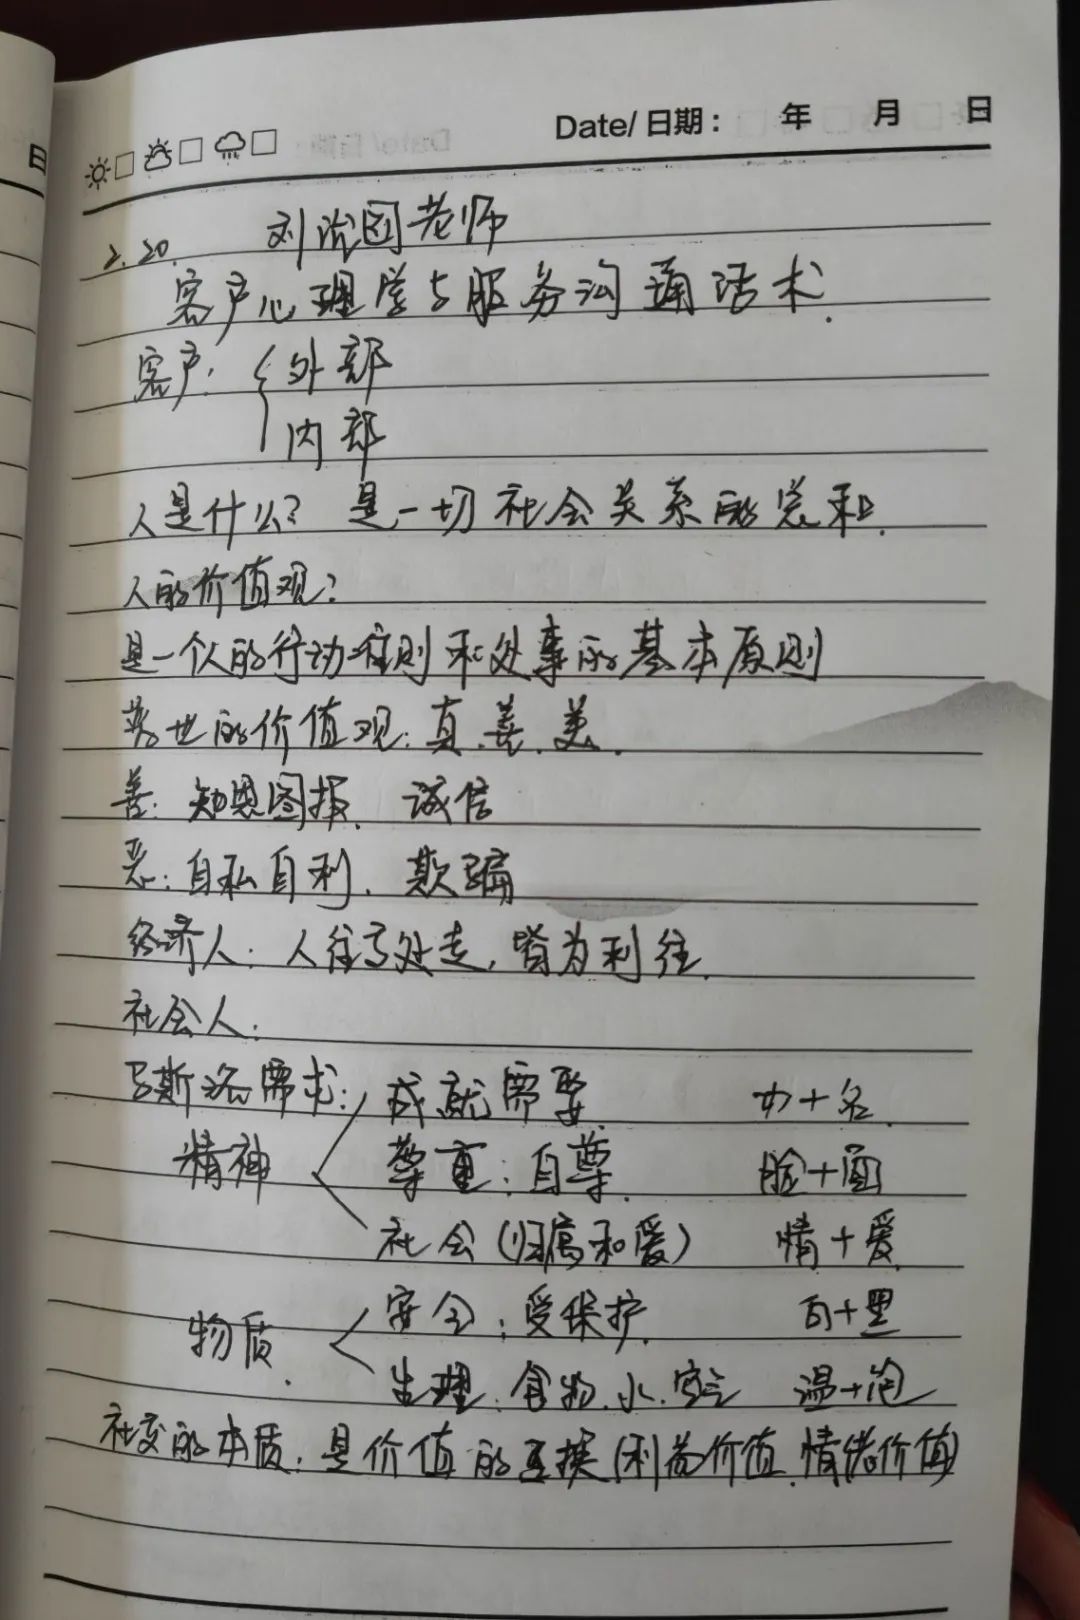 Date/日期： 年 月 日
日
2.20. 刘 老师
客户心理学与服务沟通话术.
客户: 外部
内部
人是什么? 是一切社会关系的总和.
人的价值观:
是一个人的行动准则和处事的基本原则
普世的价值观: 真.善.美.
善: 知恩图报. 诚信
恶: 自私自利. 欺骗
经济人: 人往高处走, 皆为利往.
社会人:
马斯洛需求: 成就需要. 功+名.
精神 尊重: 自尊. 脸+面
社会(归属和爱) 情+爱.
物质. 安全: 受保护.
生理: 食物.水.空气 温+饱
社交的本质: 是价值的互换(利益价值.情绪价值)